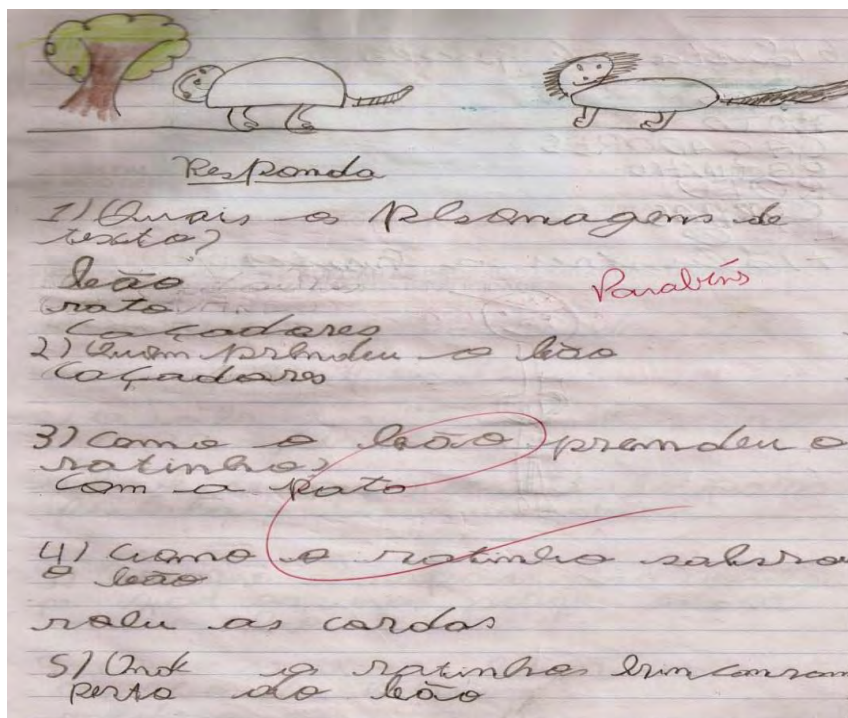 Responda
1) Quais os plsonagens de
texto?
leão
rato
Caçadores
Parabéns
2) Quem prendeu o leão
Caçadores
3) Como o leão prendeu o
ratinho?
Com a pata
4) Como o ratinho salvrou
o leão
roeu as cordas
5) Onde o ratinhos brincavam
perto do leão